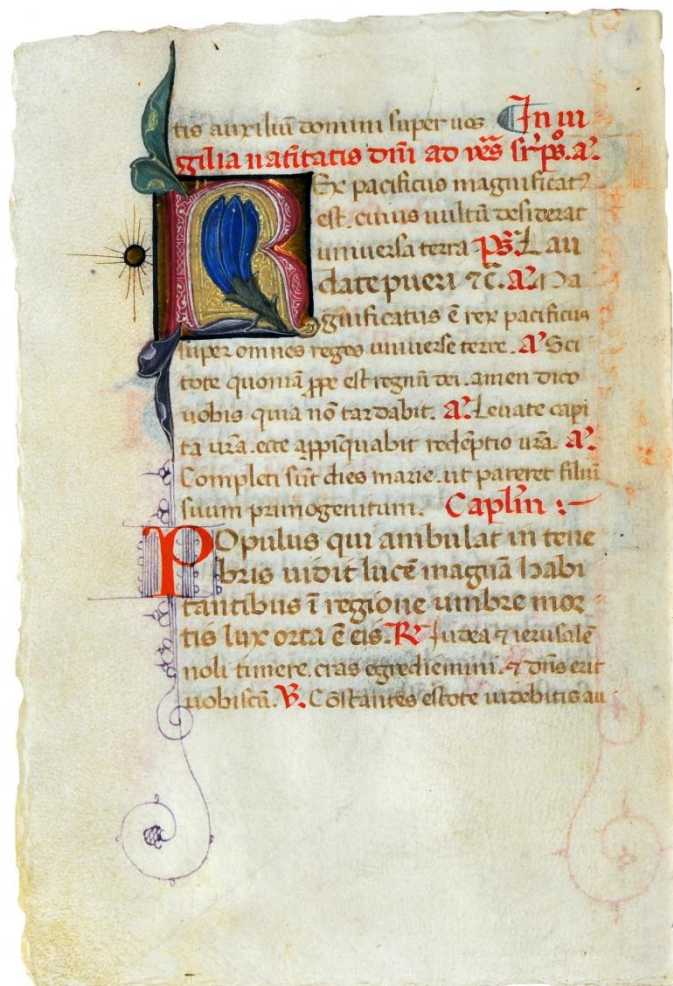 tis auxiliū domini super uos In ui
gilia natiitatis dn̄i ad ve͞s sr̄ p̄s. a.
REx pacificus magnificat᷒
est. cuius uultū desiderat
uniuersa terra Ps. Lau
date pueri ⁊c̄. a. Ma
gnificatus ē rex pacificus
super omnes reges uniuerse terre. a. Sci
tote quoniā ꝓpe est regnū dei. amen dico
uobis quia nō tardabit. a. Leuate capi
ta ur̄a. ecce appīquabit redēptio ur̄a. a.
Completi sūt dies marie. ut pareret filiū
suum primogenitum. Capl̄m :~
POpulus qui ambulat in tene
bris uidit lucē magnā habi
tantibus ī regione umbre mor
tis lux orta ē eis. ℟ Iudea ⁊ ierusalē
noli timere. cras egrediemini. ⁊ dn̄s erit
uobiscū. ℣. Cōstantes estote uidebitis au